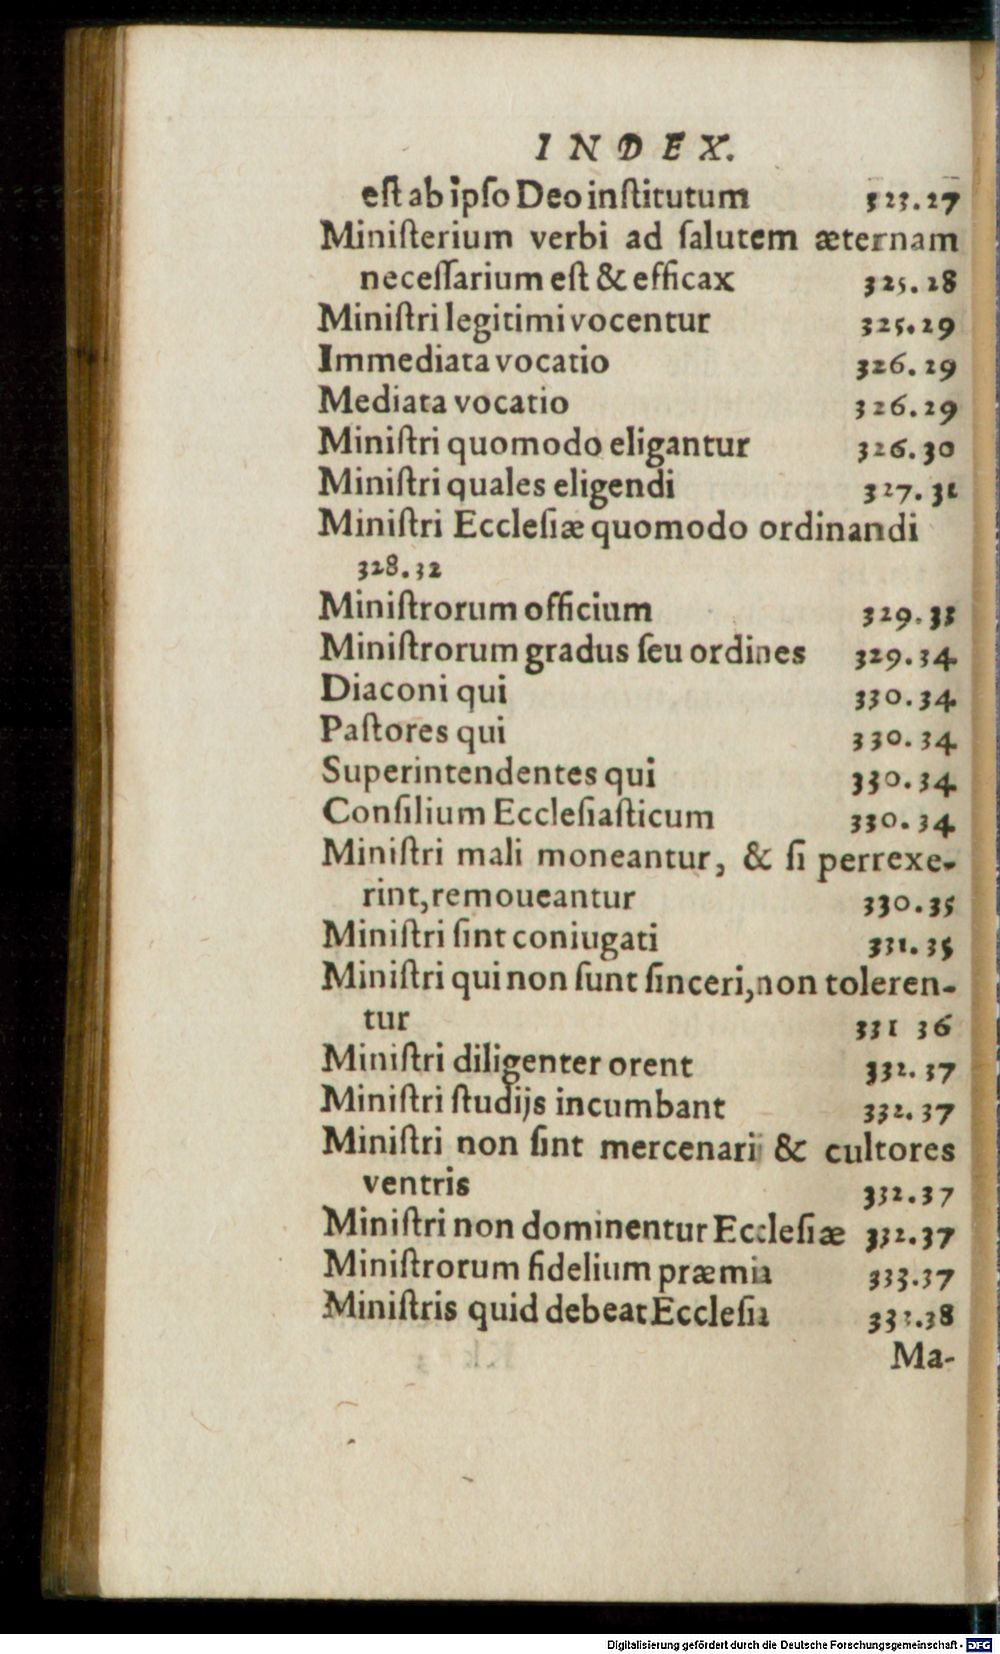 INDEX.
eſt ab ipſo Deo inſtitutum 323.27
Miniſterium verbi ad ſalutem æternam
neceſſarium eſt & efficax 325.28
Miniſtri legitimi vocentur 325.29
Immediata vocatio 326.29
Mediata vocatio 326.29
Miniſtri quomodo eligantur 326.30
Miniſtri quales eligendi 327.31
Miniſtri Eccleſiæ quomodo ordinandi
328.32
Miniſtrorum officium 329.33
Miniſtrorum gradus ſeu ordines 329.34
Diaconi qui 330.34
Paſtores qui 330.34
Superintendentes qui 330.34
Conſilium Eccleſiaſticum 330.34
Miniſtri mali moneantur, & ſi perrexe-
rint, remoueantur 330.35
Miniſtri ſint coniugati 331.35
Miniſtri qui non ſunt ſinceri, non toleren-
tur 331 36
Miniſtri diligenter orent 332.37
Miniſtri ſtudijs incumbant 332.37
Miniſtri non ſint mercenarij & cultores
ventris 332.37
Miniſtri non dominentur Eccleſiæ 332.37
Miniſtrorum fidelium præmia 333.37
Miniſtris quid debeat Eccleſia 333.38
Ma-
Digitalisierung gefördert durch die Deutsche Forschungsgemeinschaft - DFG